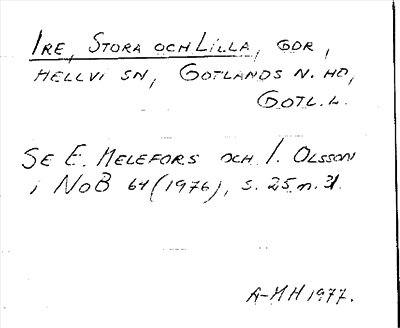 IRE, STORA OCH LILLA, GDR,
HELLVI SN, GOTLANDS N. HD,
GOTL. L.
SE E. MELEFORS OCH I. OLSSON
i NoB 64 (1976), s. 25 n. 31.
A-MH 1977.